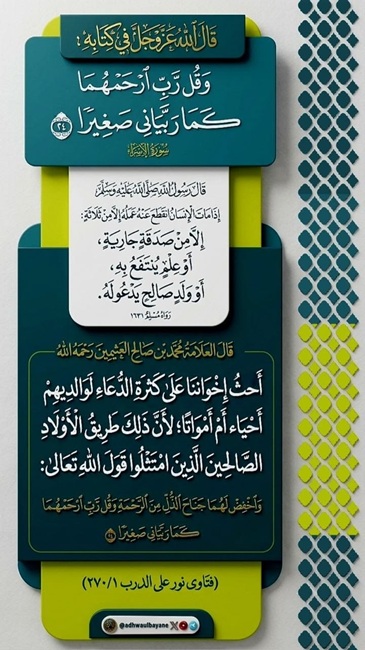 قَالَ اللهُ عَزَّ وَجَلَّ فِي كِتَابِهِ:
وَقُل رَّبِّ ٱرۡحَمۡهُمَا
كَمَا رَبَّيَانِي صَغِيرٗا ٢٤
سُورَةُ الإِسْرَاء
قَالَ رَسُولُ اللهِ صَلَّى اللهُ عَلَيْهِ وَسَلَّمَ
إِذَا مَاتَ الْإِنْسَانُ انْقَطَعَ عَنْهُ عَمَلُهُ إِلَّا مِنْ ثَلَاثَةٍ:
إِلَّا مِنْ صَدَقَةٍ جَارِيَةٍ،
أَوْ عِلْمٍ يُنْتَفَعُ بِهِ،
أَوْ وَلَدٍ صَالِحٍ يَدْعُو لَهُ.
رَوَاهُ مُسْلِمٌ ١٦٣١
قَالَ العَلَّامَةُ مُحَمَّد بْن صَالِح العُثَيْمِين رَحِمَهُ اللهُ
أَحثُّ إِخْوَانَنَا عَلَى كَثْرَةِ الدُّعَاءِ لِوَالِدِيهِمْ
أَحْيَاء أَمْ أَمْوَاتًا؛ لأَنَّ ذَلِكَ طَرِيقُ الْأَوْلَادِ
الصَّالِحِينَ الَّذِينَ امْتَثَلُوا قَولَ اللهِ تَعَالَى:
وَٱخۡفِضۡ لَهُمَا جَنَاحَ ٱلذُّلِّ مِنَ ٱلرَّحۡمَةِ وَقُل رَّبِّ ٱرۡحَمۡهُمَا
كَمَا رَبَّيَانِي صَغِيرٗا
(فتاوى نور على الدرب ٢٧٠/١)
@adhwaulbayane